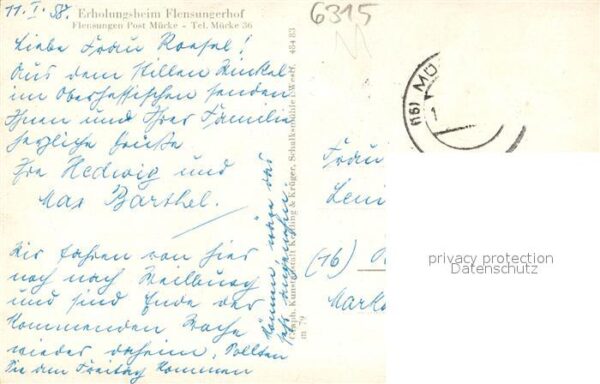 11. I. 58.
Erholungsheim Flensungerhof
Flensungen Post Mücke - Tel. Mücke 36
6315
Liebe Frau Roesel!
Aus dem stillen Winkel
im Oberhessischen senden
Ihnen und Ihrer Familie
herzliche Grüße
Ihre Hedwig und
Max Barthel.
Wir fahren von hier
noch nach Weilburg
und sind Ende der
kommenden Woche
wieder daheim. Sollten
Sie am Freitag kommen
können, wäre das
sehr
Graph. Kunstanstalt Kettling & Krüger, Schalksmühle i. Westf. 484 83
m 79
(16) MÜ
Frau
Leni
(16)
privacy protection
Datenschutz